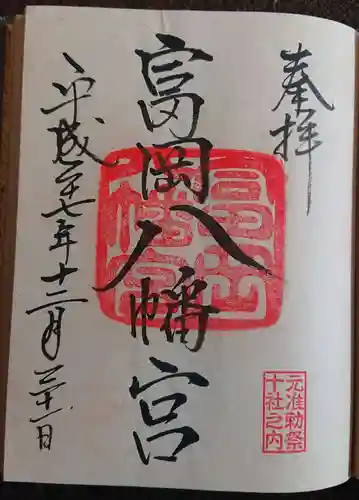 奉拝
富岡八幡宮
平成二十七年十二月三十一日
元准勅祭
十社之内